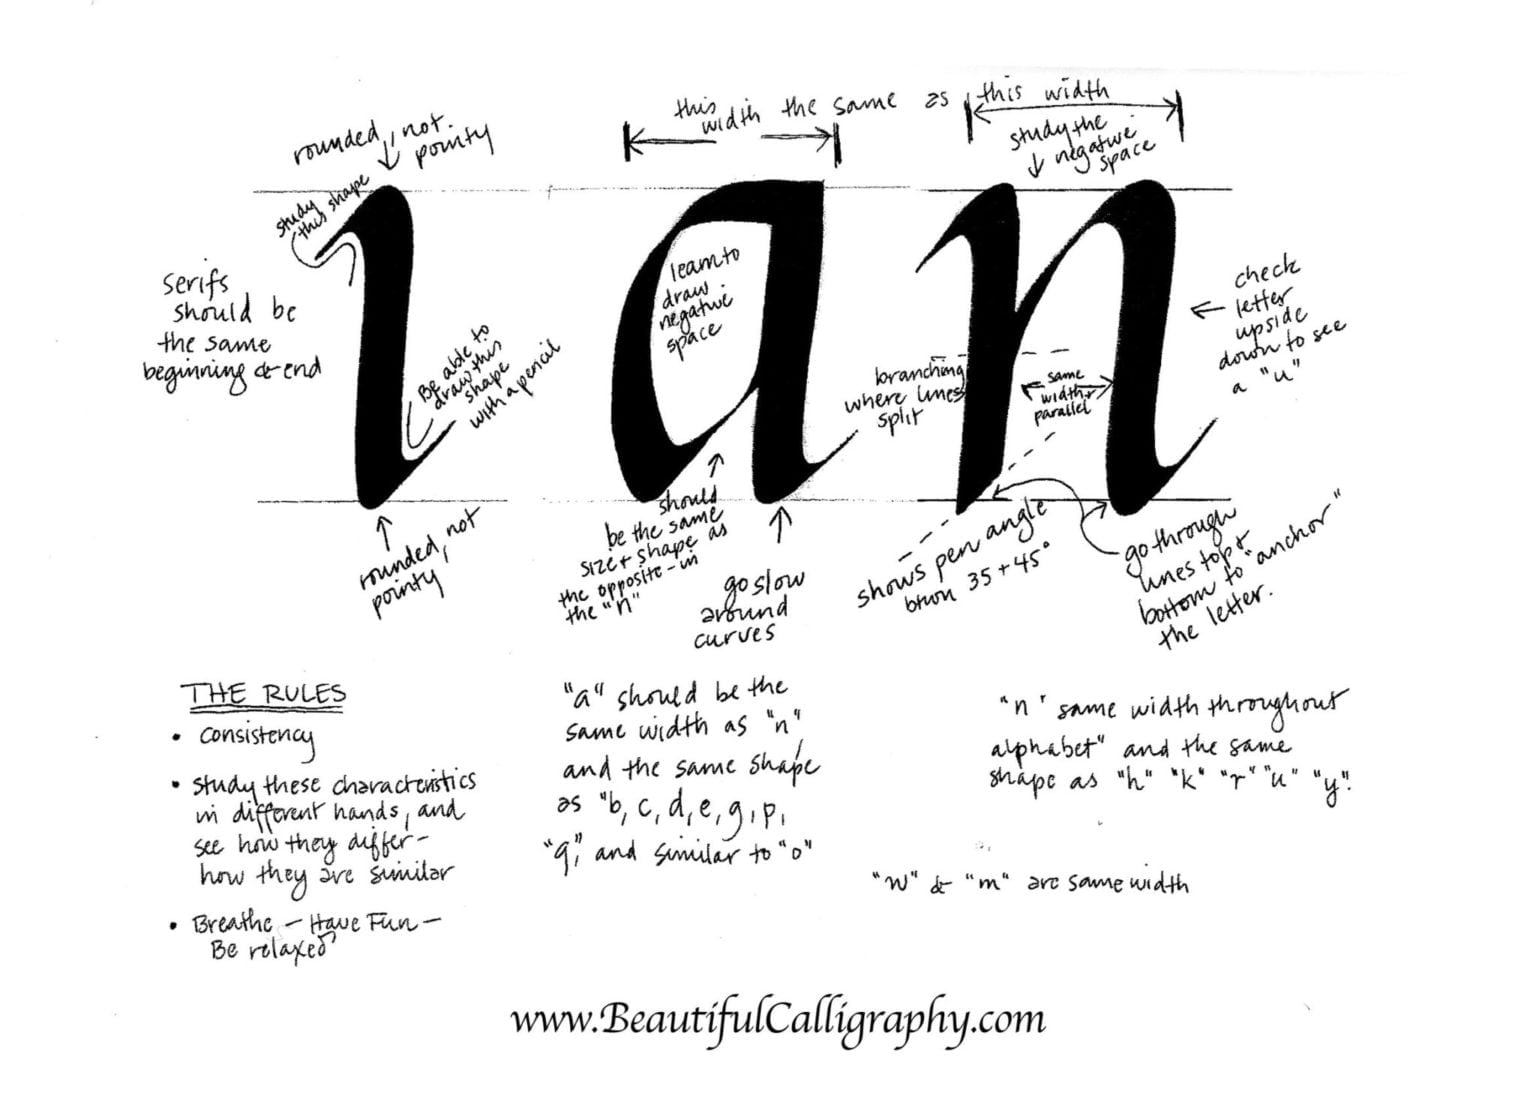 this
width the same as this width
rounded, not
pointy
study the
negative
space
study
this shape
ı a n
learn to
draw
negative
space
serifs
should be
the same
beginning & end
Be able to
draw this
shape
with a pencil
branching
where lines
split
same
width +
parallel
check
letter
upside
down to see
a "u"
rounded, not
pointy
should
be the same
size + shape as
the opposite - in
the "n"
go slow
around
curves
shows pen angle
btwn 35 + 45°
go through
lines top +
bottom to "anchor"
the letter.
THE RULES
• Consistency
• Study these characteristics
in different hands, and
see how they differ -
how they are similar
• Breathe - Have Fun -
Be relaxed
"a" should be the
same width as "n",
and the same shape
as "b, c, d, e, g, p,
"q," and similar to "o"
"n" same width throughout
alphabet" and the same
shape as "h" "k" "r" "u" "y".
"w" & "m" are same width
www.BeautifulCalligraphy.com